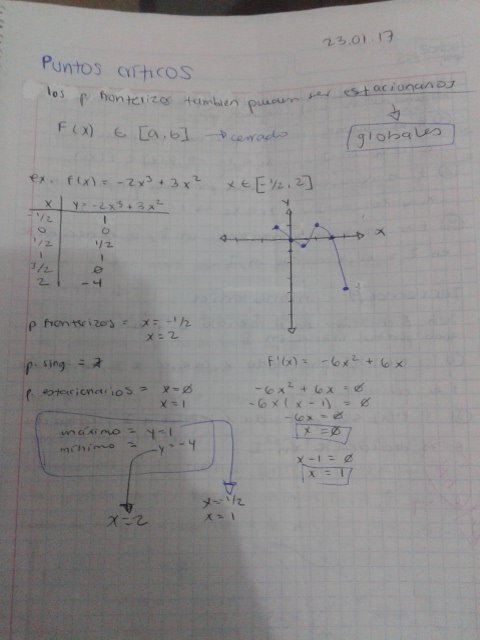 23.01.17
Puntos críticos
los p. fronterizos tambien pueden ser estacionarios
F(x) ∈ [a,b] → cerrado
globales
ex. F(x) = -2x³ + 3x² x ∈ [-1/2, 2]
x y = -2x³ + 3x²
1/2 1
0 0
1/2 1/2
1 1
3/2 0
2 -4
y
x
p. fronterizos = x = -1/2
x = 2
p. sing. = ∄
F'(x) = -6x² + 6x
p. estacionarios = x = 0
x = 1
-6x² + 6x = 0
-6x(x - 1) = 0
-6x = 0
x = 0
x - 1 = 0
x = 1
máximo = y = 1
mínimo = y = -4
x = 2
x = -1/2
x = 1